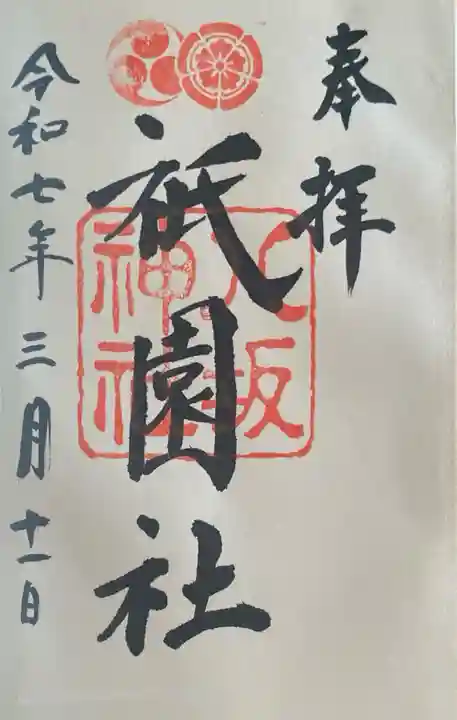 奉拝
祇園社
八坂神社
令和七年三月十一日